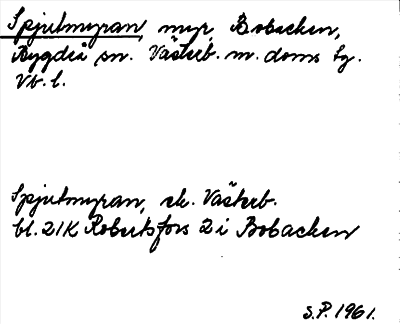 Spjutmyran, myr, Bobacken,
Bygdeå sn. Västerb. m. doms tg.
Vb. l.
Spjutmyran, ek. Västerb.
bl. 21K Robertsfors 2 i Bobacken
S.P. 1961.